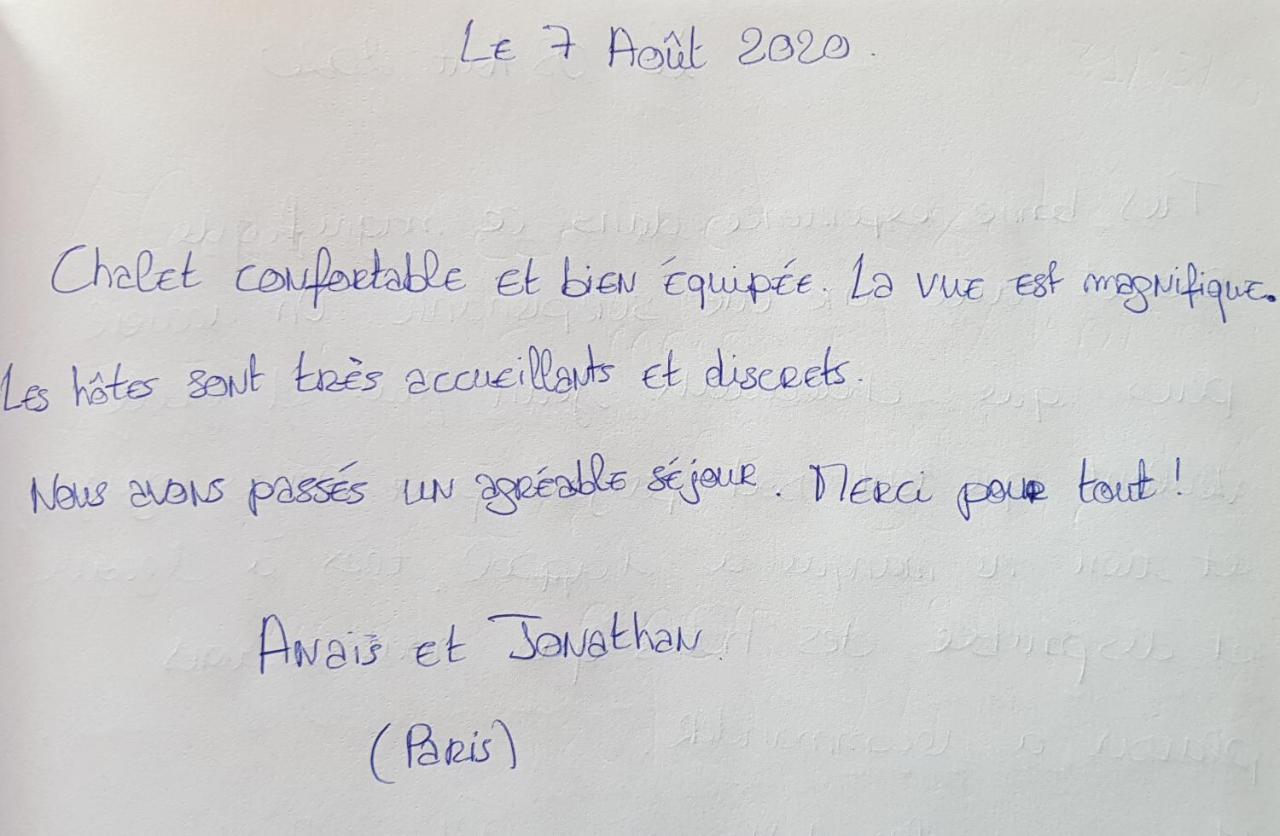 Le 7 Août 2020.
Chalet confortable et bien équipée. La vue est magnifique.
Les hôtes sont très accueillants et discrets.
Nous avons passés un agréable séjour. Merci pour tout !
Anais et Jonathan.
(Paris)